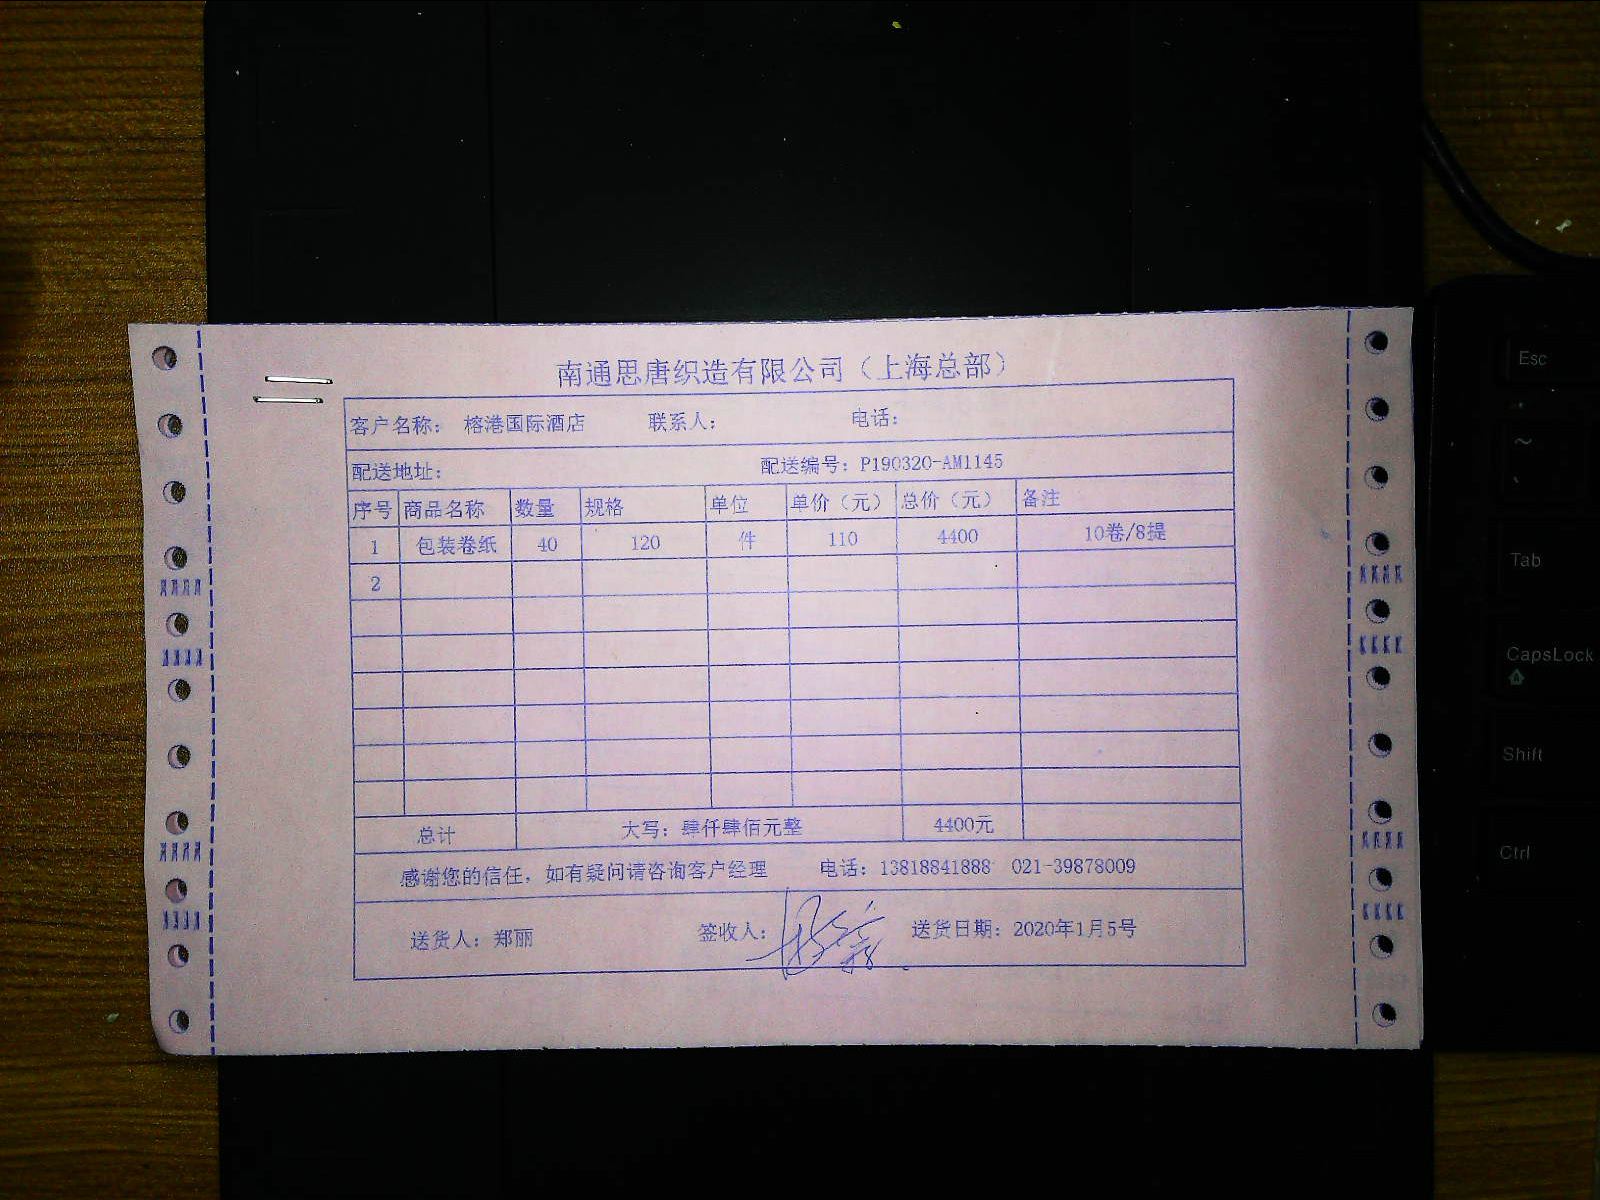 南通思唐织造有限公司（上海总部）
客户名称： 榕港国际酒店 联系人： 电话：
配送地址： 配送编号：P190320-AM1145
序号 商品名称 数量 规格 单位 单价（元） 总价（元） 备注
1 包装卷纸 40 120 件 110 4400 10卷/8提
2
总计 大写：肆仟肆佰元整 4400元
感谢您的信任，如有疑问请咨询客户经理 电话：13818841888 021-39878009
送货人：郑丽 签收人： 送货日期：2020年1月5号
Esc
~
、
Tab
CapsLock
Shift
Ctrl